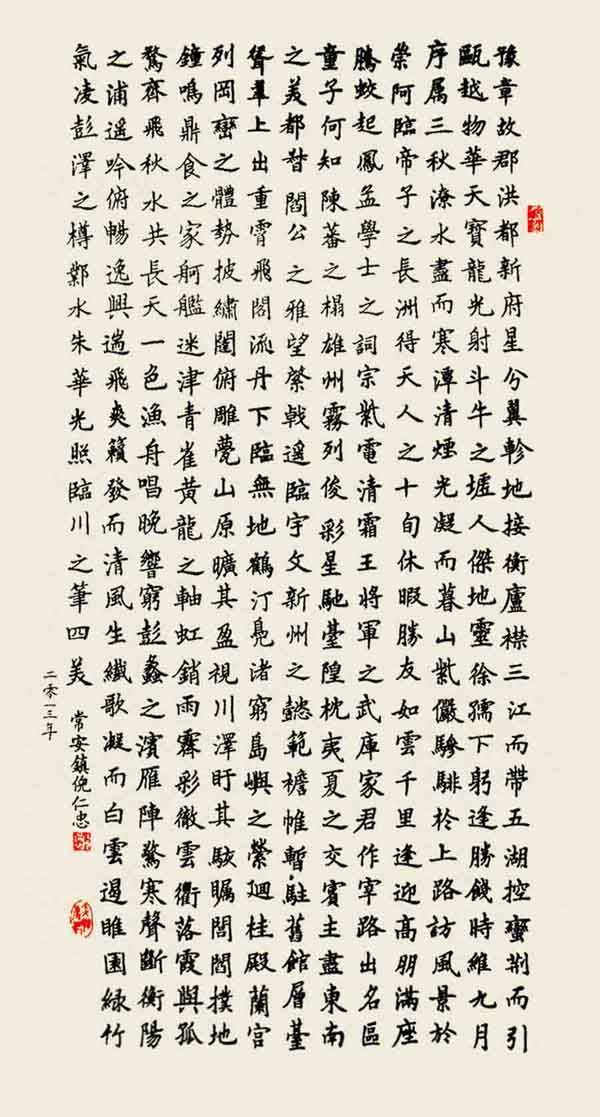 豫章故郡洪都新府星分翼軫地接衡廬襟三江而帶五湖控蠻荊而引
甌越物華天寶龍光射斗牛之墟人傑地靈徐孺下躬逢勝餞時維九月
序属三秋潦水盡而寒潭清煙光凝而暮山紫儼驂騑於上路訪風景於
崇阿臨帝子之長洲得天人之十旬休暇勝友如雲千里逢迎高朋滿座
騰蛟起鳳孟學士之詞宗紫電清霜王將軍之武庫家君作宰路出名區
童子何知陳蕃之榻雄州霧列俊彩星馳臺隍枕夷夏之交賓主盡東南
之美都督閻公之雅望棨戟遥臨宇文新州之懿範襜帷暫駐舊館層臺
聳翠上出重霄飛閣流丹下臨無地鶴汀鳧渚窮島嶼之縈廻桂殿蘭宮
列岡巒之體勢披繡闥俯雕甍山原曠其盈視川澤盱其駭矚閭閻撲地
鐘鳴鼎食之家舸艦迷津青雀黃龍之軸虹銷雨霽彩徹雲衢落霞與孤
鶩齊飛秋水共長天一色漁舟唱晚響窮彭蠡之濱雁陣驚寒聲斷衡陽
之浦遥吟俯暢逸興遄飛爽籟發而清風生纖歌凝而白雲遏睢園綠竹
氣凌彭澤之樽鄴水朱華光照臨川之筆四美
常安鎮倪仁忠
二零一三年